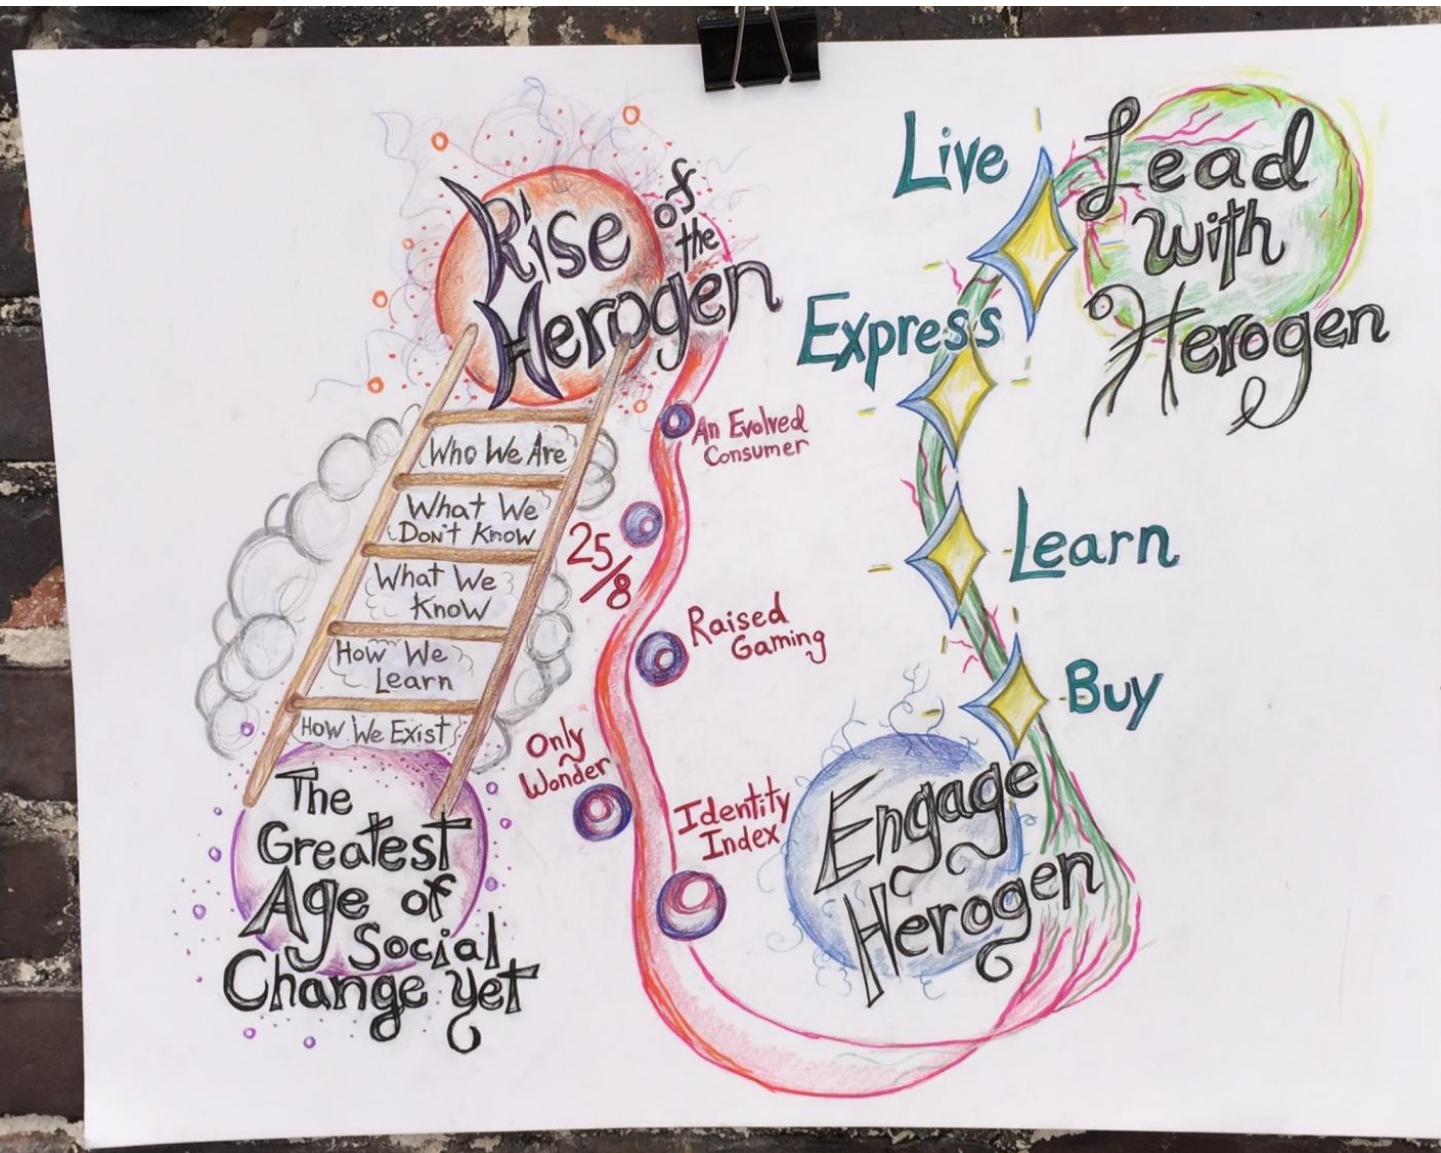 Rise of
the
Herogen
Who We Are
What We
Don't Know
What We
Know
How We
Learn
How We Exist
The
Greatest
Age of
Social
Change Yet
An Evolved
Consumer
25/8
Raised
Gaming
Only
Wonder
Identity
Index
Engage
Herogen
Buy
Learn
Express
Live
Lead
with
Herogen